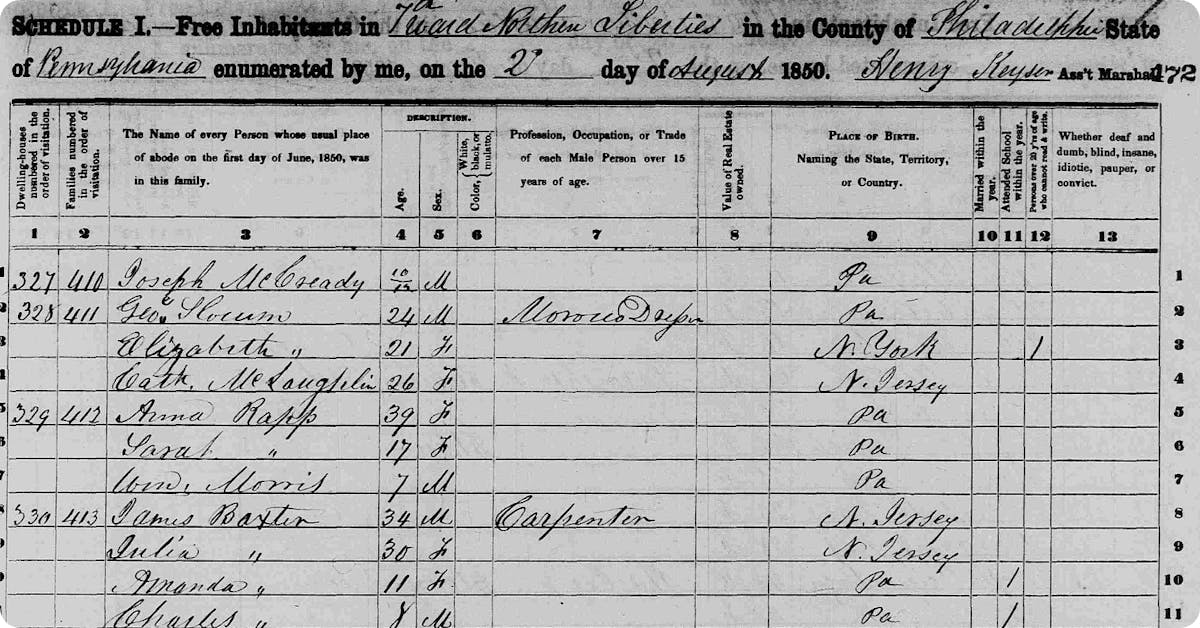 SCHEDULE I.—Free Inhabitants in 7 Ward Northern Liberties in the County of Philadelphia State
of Pennsylvania enumerated by me, on the 2d day of August 1850. Henry Keyser Ass't Marshal 172
Dwelling-houses numbered in the order of visitation.
Families numbered in the order of visitation.
The Name of every Person whose usual place of abode on the first day of June, 1850, was in this family.
DESCRIPTION.
Age.
Sex.
Color, { White, black, or mulatto.
Profession, Occupation, or Trade of each Male Person over 15 years of age.
Value of Real Estate owned.
PLACE OF BIRTH. Naming the State, Territory, or Country.
Married within the year.
Attended School within the year.
Persons over 20 y'rs of age who cannot read & write.
Whether deaf and dumb, blind, insane, idiotic, pauper, or convict.
1 2 3 4 5 6 7 8 9 10 11 12 13
1 327 410 Joseph McCready 10/12 M Pa 1
2 328 411 Geo. Slocum 24 M Morocco Dresser Pa 2
3 Elizabeth " 21 F N. York / 3
4 Cath. McLaughlin 26 F N. Jersey 4
5 329 412 Anna Rapp 39 F Pa 5
6 Sarah " 17 F Pa 6
7 Wm. Morris 7 M Pa 7
8 330 413 James Baxter 34 M Carpenter N. Jersey 8
9 Julia " 30 F N. Jersey 9
Amanda " 11 F Pa / 10
Charles " 8 M Pa / 11